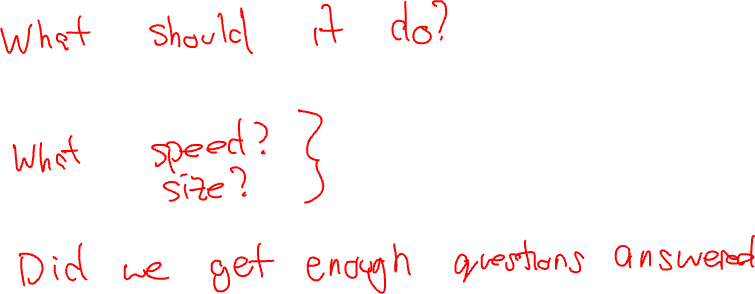 What should it do?
What speed?
size?
Did we get enough questions answered